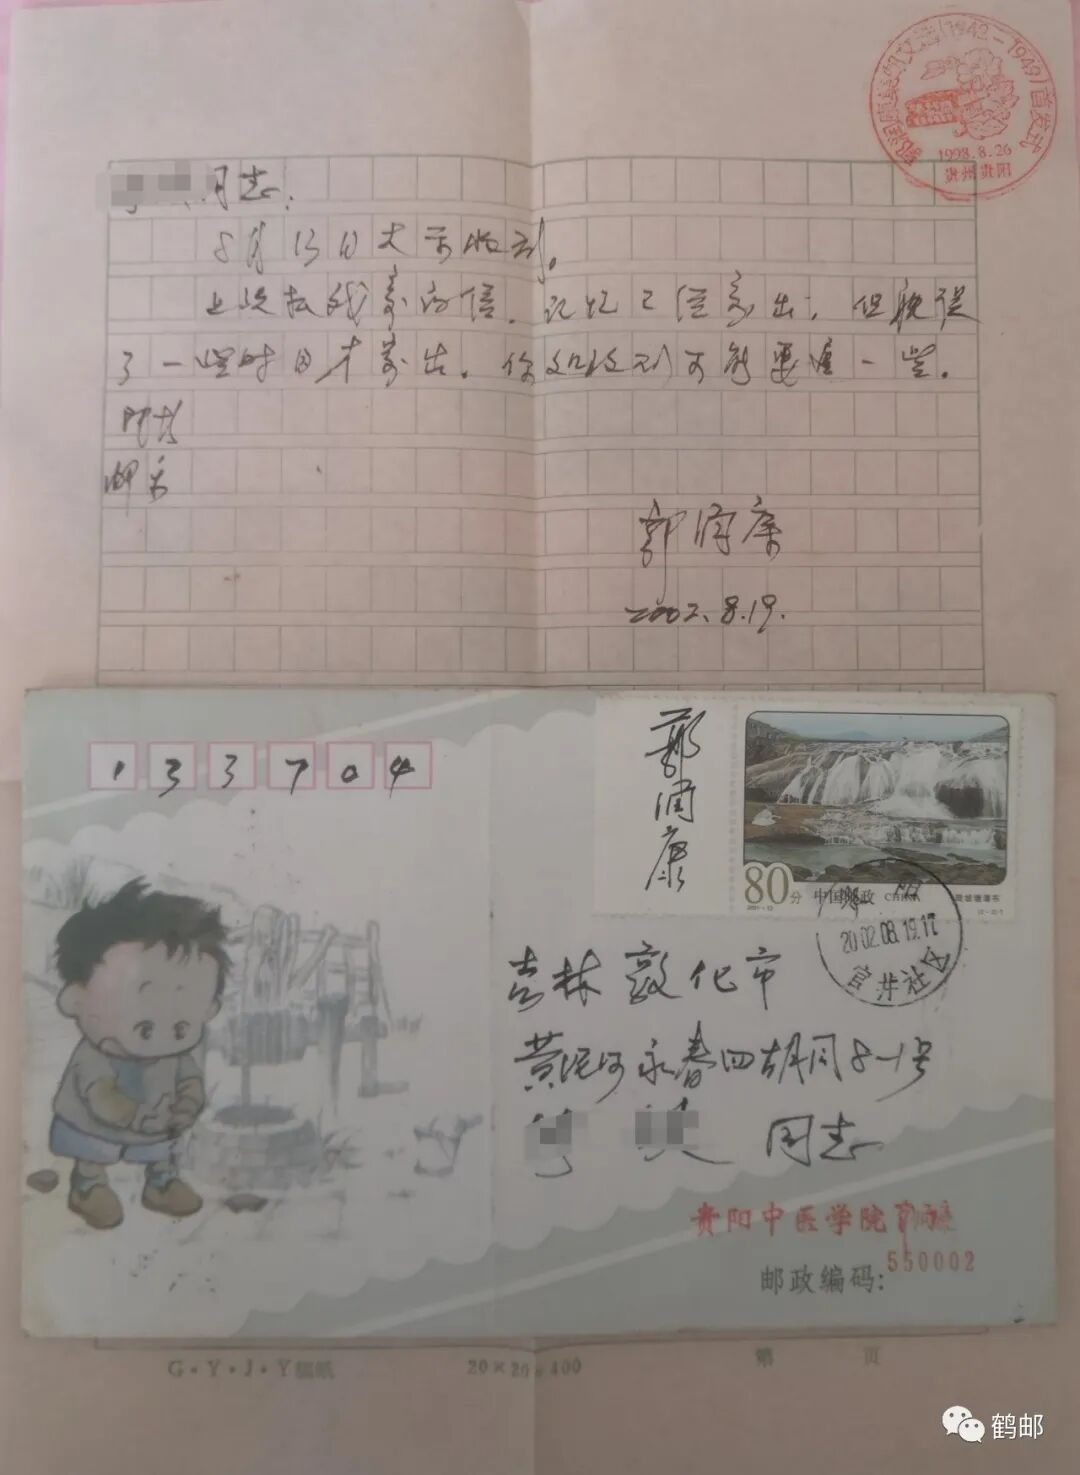 (1942-1949)首发式
1998.8.26
贵州贵阳
同志:
8月13日大示收到。
上次拉我寄的信,记忆已经寄出,但耽误
了一些时日才寄出。你如收到可能要晚一些。
附颂
邮安
郭润康
2002.8.19.
133704
郭润康
80分
中国邮政 CHINA
2002.08.19.17
宫井社区
吉林敦化市
黄泥河永春四胡同8-1号
同志
贵阳中医学院
550002
邮政编码:
G·Y·J·Y稿纸
20×20=400
第 页
鹤邮